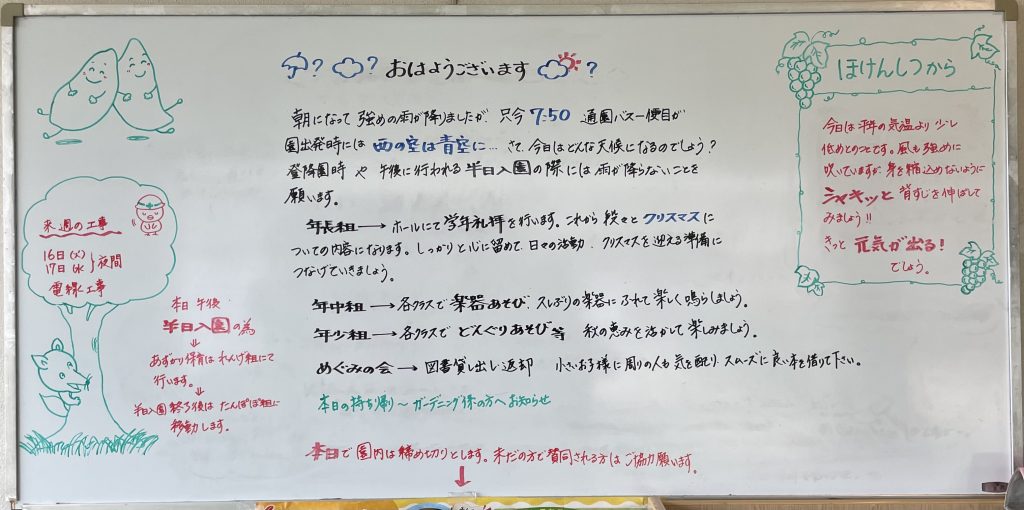 ? ? おはようございます ?
朝になって 強めの雨が降りましたが、只今 7:50 通園バス一便目が
園出発時には 西の空は青空に… さて、今日はどんな天候になるのでしょう?
登降園時 や 午後に行われる 半日入園の際には 雨が降らないことを
願います。
年長組→ホールにて 学年礼拝を行います。これから 段々と クリスマスに
ついての内容になります。しっかりと心に留めて、日々の活動、クリスマスを迎える準備に
つなげていきましょう。
年中組→各クラスで 楽器あそび、久しぶりの楽器に ふれて 楽しく鳴らしましょう。
年少組→各クラスで どんぐりあそび等 秋の恵みを活かして 楽しみましょう。
めぐみの会→図書貸し出し・返却 小さいお子様に 周りの人も気を配り スムーズに良い本を借りて下さい。
本日の持ち帰り〜ガーデニング係の方へお知らせ
本日で園内は締め切りとします。未だの方で賛同される方は ご協力願います。
↓
来週の工事
16日(火)
17日(水)}夜間
電線工事
本日 午後
半日入園の為
↓
あずかり保育は れんげ組にて
行います。
↓
半日入園 終了後は たんぽぽ組に
移動します。
ほけんしつから
今日は 平年の気温より 少し
低めとのことです。風も強めに
吹いていますが、身を縮込めないように
シャキッと 背すじを伸ばして
みましょう!!
きっと 元気が出る!
でしょう。